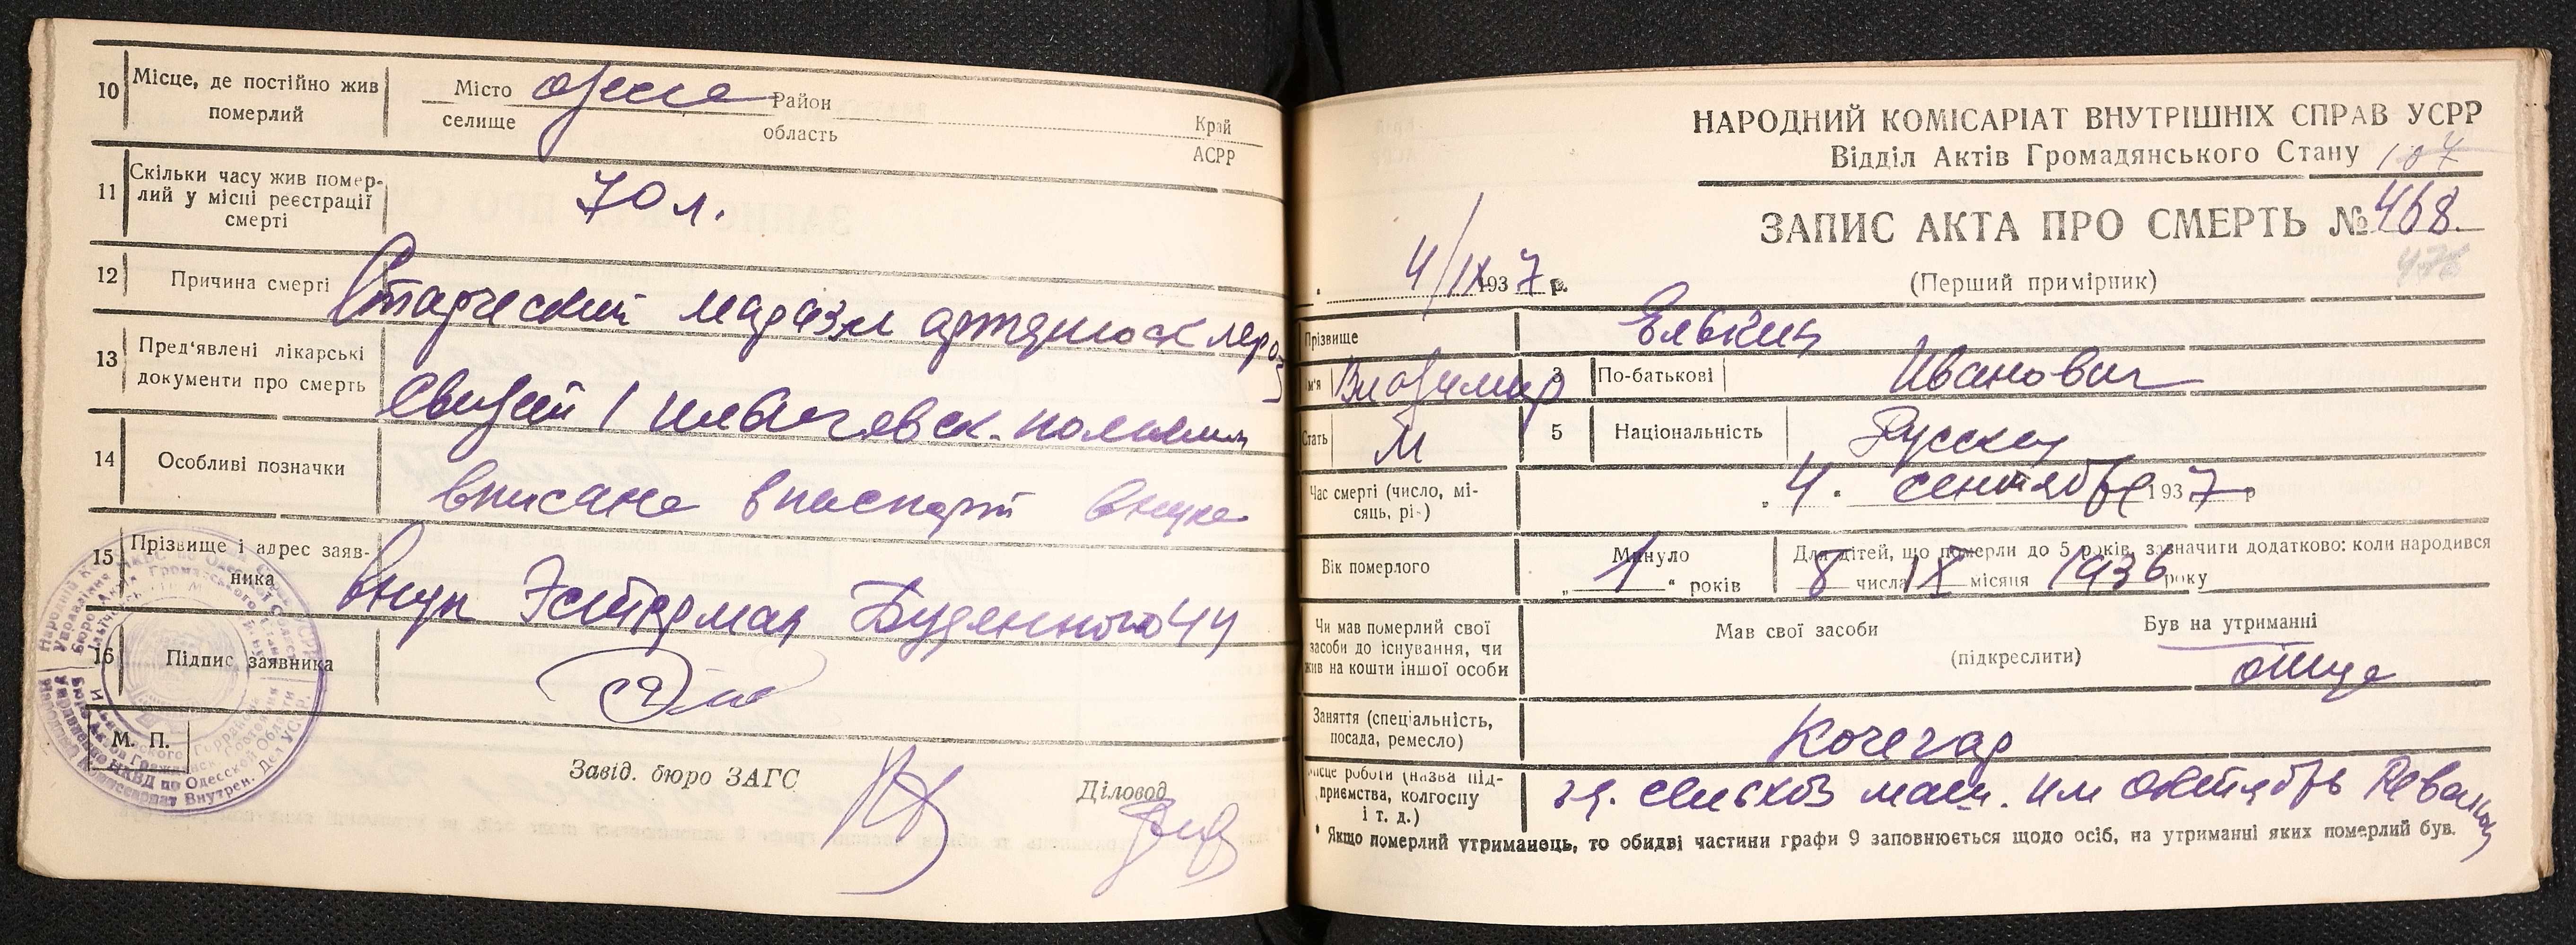 10 Місце, де постійно жив померлий
Місто Одесса Район
селище область
Край
АСРР
11 Скільки часу жив помер-
лий у місці реєстрації
смерті
70 л.
12 Причина смерті
Старческий маразм артериосклероз
13 Пред'явлені лікарські
документи про смерть
14 Особливі позначки
вписана в паспорт
15 Прізвище і адрес заяв-
ника
внук Буденного 44
16 Підпис заявника
М. П.
Завід. бюро ЗАГС
Діловод
НАРОДНИЙ КОМІСАРІАТ ВНУТРІШНІХ СПРАВ УСРР
Відділ Актів Громадянського Стану 107
ЗАПИС АКТА ПРО СМЕРТЬ № 468.
476
4/IX 1937 р.
(Перший примірник)
Прізвище Елькин
Ім'я Владимир 3 По-батькові Иванович
Стать М 5 Національність Русский
Час смерті (число, мі-
сяць, рік)
„ 4 " сентября 1937 р
Вік померлого
Минуло
„ 1 " років
Для дітей, що померли до 5 років, зазначити додатково: коли народився
8 числа IX місяця 1936 року
Чи мав померлий свої
засоби до існування, чи
жив на кошти іншої особи
Мав свої засоби
(підкреслити)
Був на утриманні
отца
Заняття (спеціальність,
посада, ремесло)
Кочегар
Місце роботи (назва під-
приємства, колгоспу
і т. д.)
маш. им Октябрь Револ
* Якщо померлий утриманець, то обидві частини графи 9 заповнюється щодо осіб, на утриманні яких померлий був.